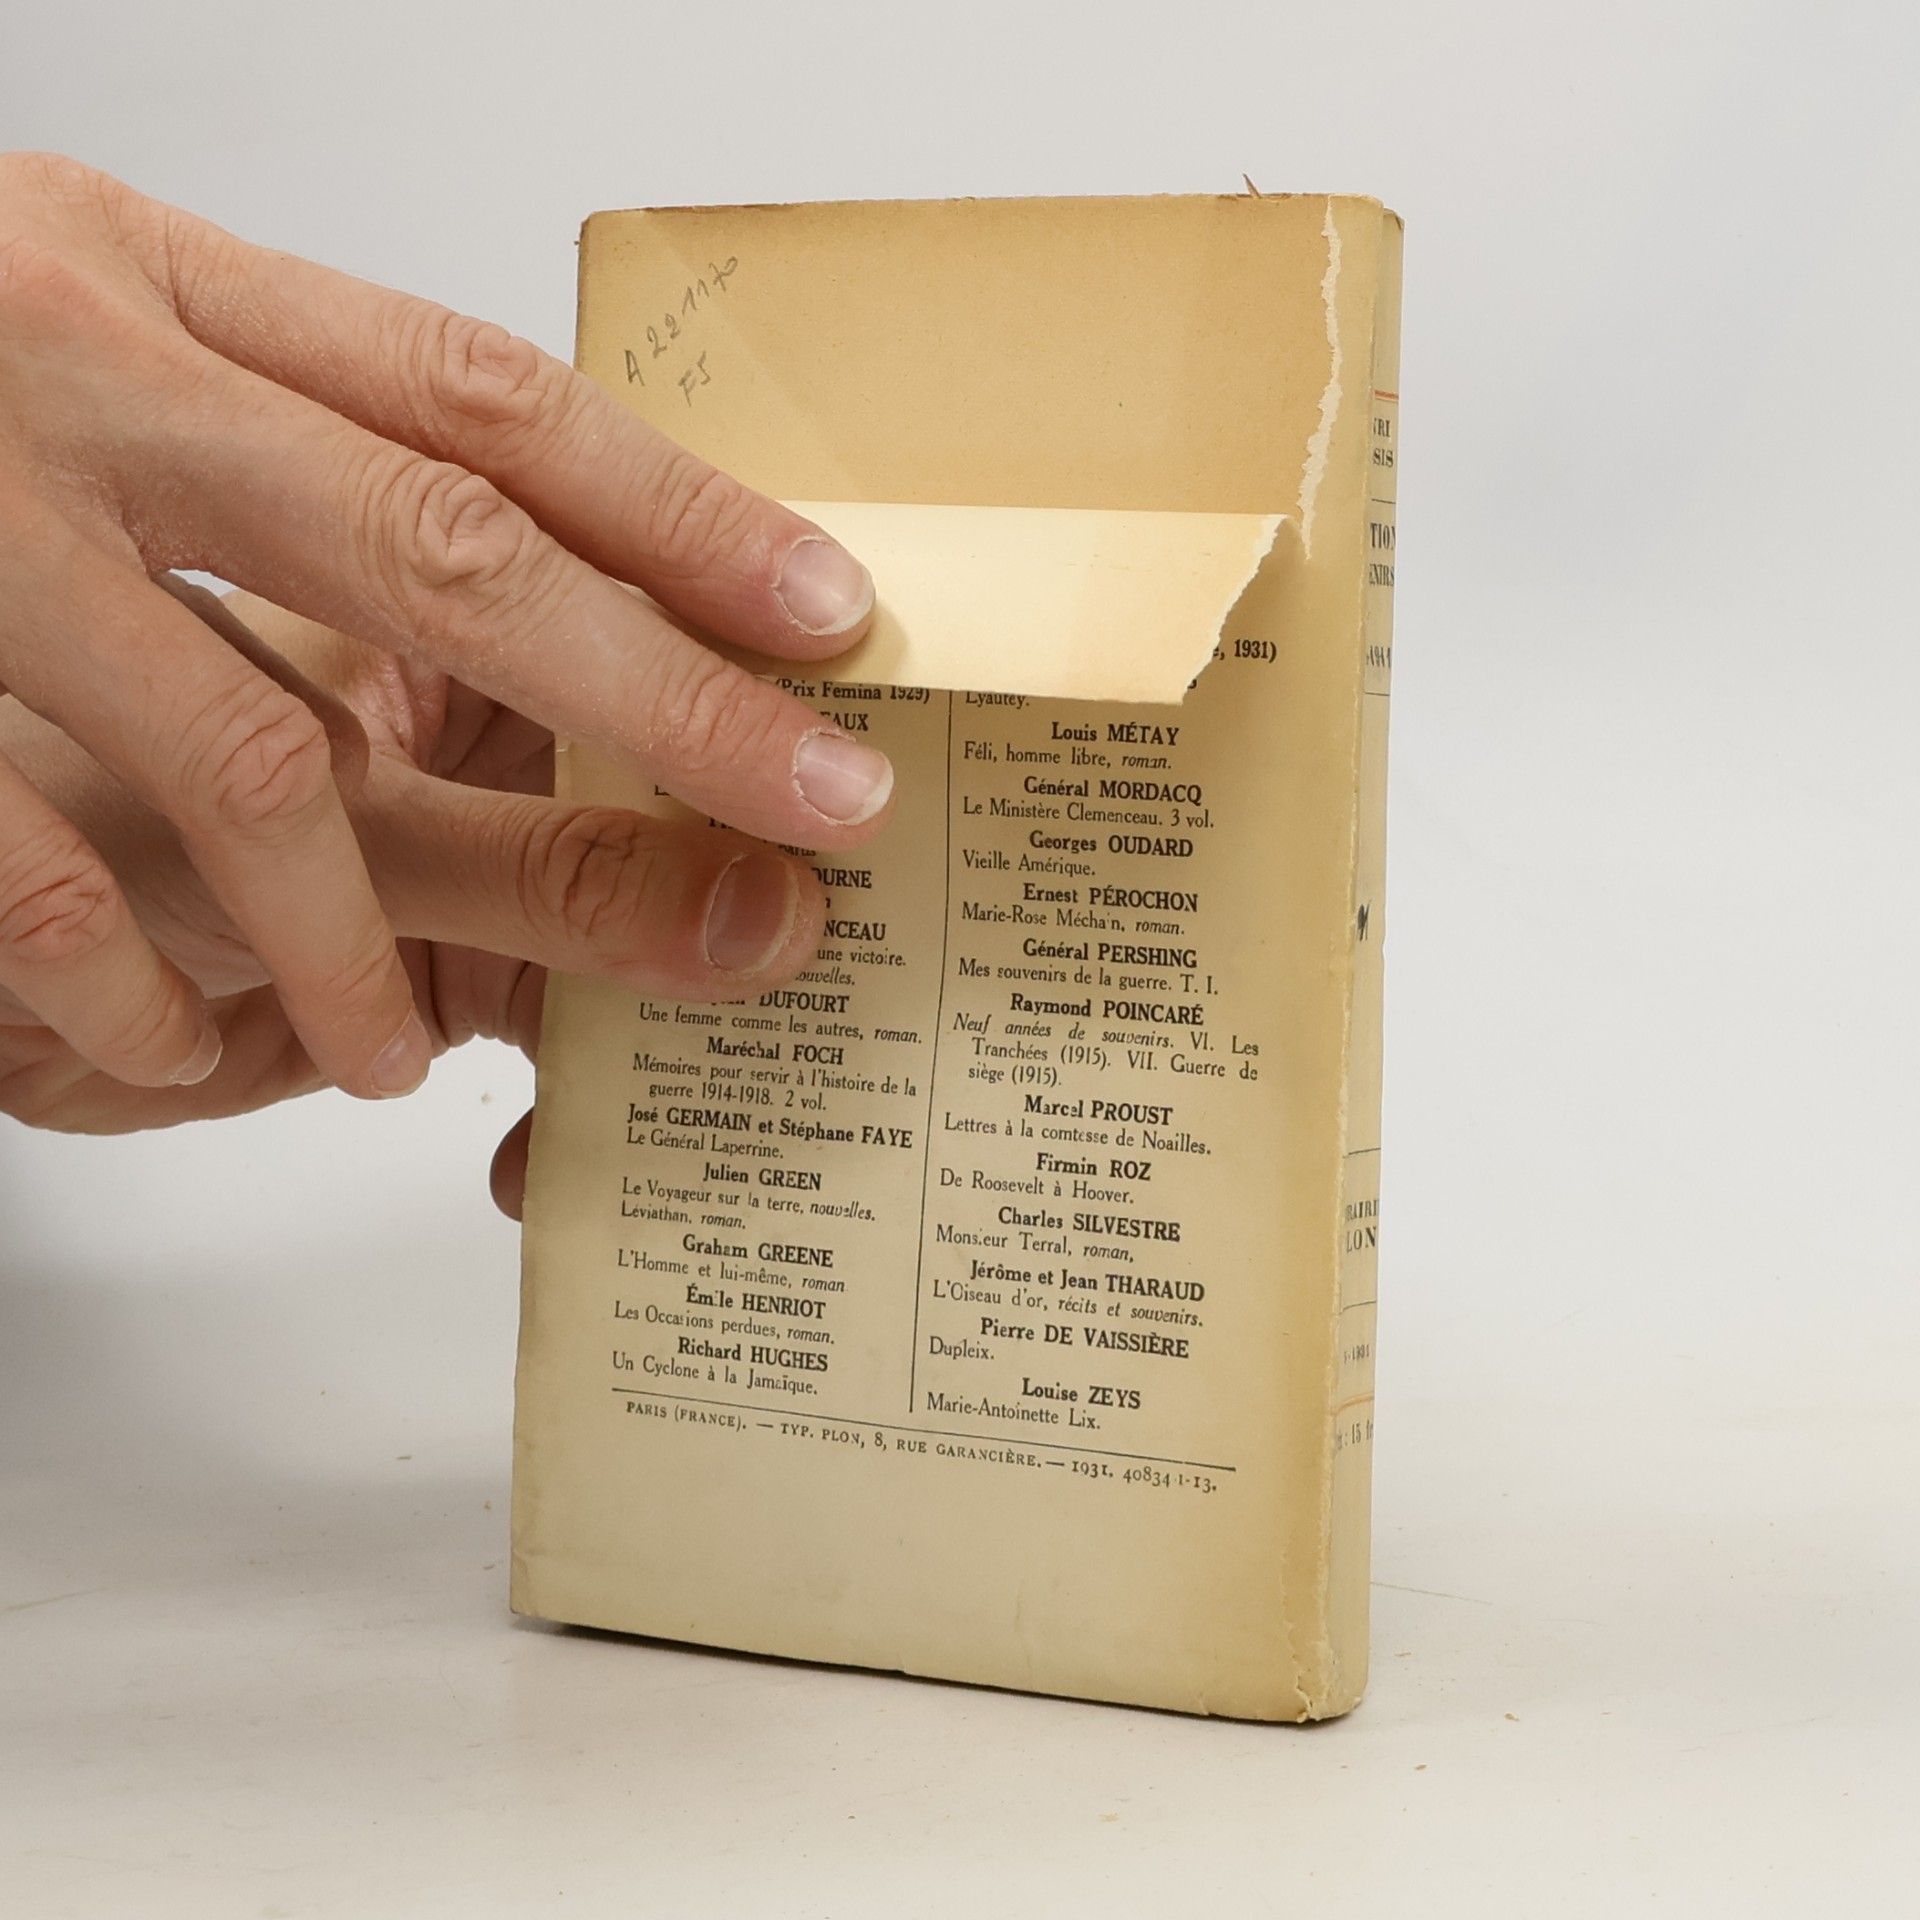 A 221170
F5
, 1931)
(Prix Femina 1929)
EAUX
OURNE
NCEAU
une victoire.
ouvelles.
DUFOURT
Une femme comme les autres, roman.
Maréchal FOCH
Mémoires pour servir à l'histoire de la
guerre 1914-1918. 2 vol.
José GERMAIN et Stéphane FAYE
Le Général Laperrine.
Julien GREEN
Le Voyageur sur la terre, nouvelles.
Léviathan, roman.
Graham GREENE
L'Homme et lui-même, roman
Émile HENRIOT
Les Occasions perdues, roman.
Richard HUGHES
Un Cyclone à la Jamaïque.
Lyautey.
Louis MÉTAY
Féli, homme libre, roman.
Général MORDACQ
Le Ministère Clemenceau. 3 vol.
Georges OUDARD
Vieille Amérique.
Ernest PÉROCHON
Marie-Rose Méchain, roman.
Général PERSHING
Mes souvenirs de la guerre. T. I.
Raymond POINCARÉ
Neuf années de souvenirs. VI. Les
Tranchées (1915). VII. Guerre de
siège (1915).
Marcel PROUST
Lettres à la comtesse de Noailles.
Firmin ROZ
De Roosevelt à Hoover.
Charles SILVESTRE
Monsieur Terral, roman,
Jérôme et Jean THARAUD
L'Oiseau d'or, récits et souvenirs.
Pierre DE VAISSIÈRE
Dupleix.
Louise ZEYS
Marie-Antoinette Lix.
PARIS (FRANCE). — TYP. PLON, 8, RUE GARANCIÈRE. — 1931. 40834-1-13.
RI
SIS
TION
ENIRS
RAIRI
LON
: 15 fr